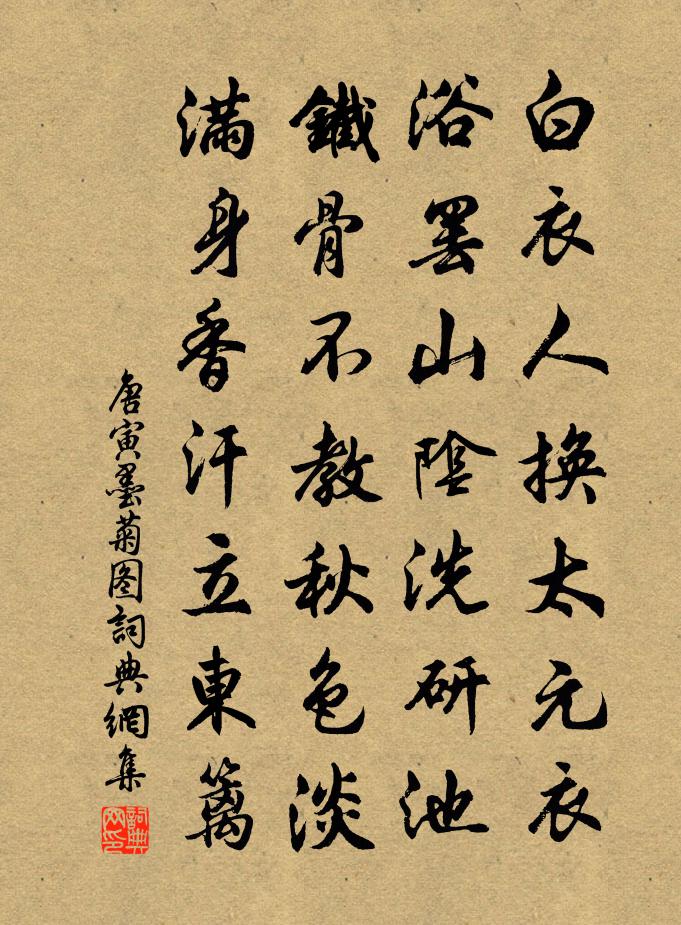 白衣人換太元衣
浴罢山陰洗研池
鐵骨不教秋色淡
满身香汗立東籬
唐寅墨菊图詞典網集
詞典网印